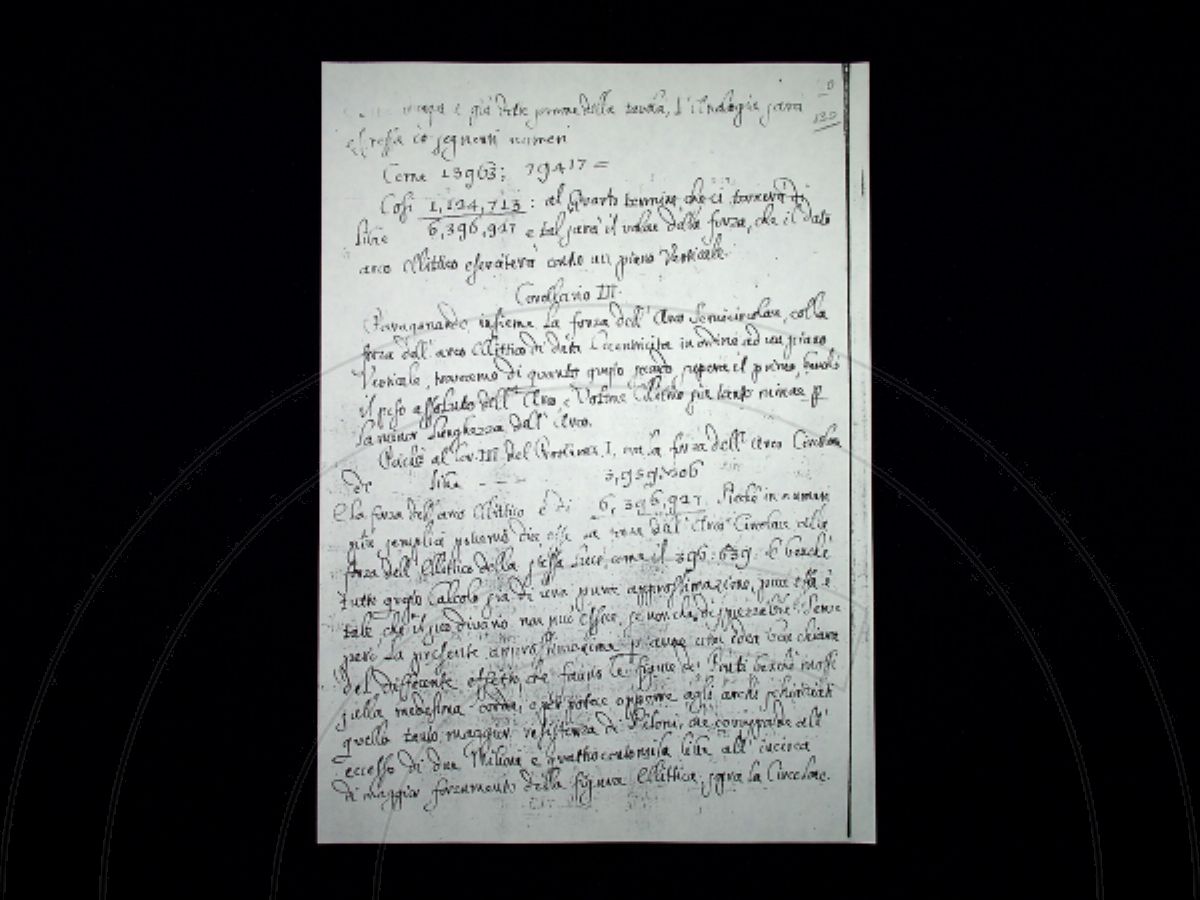 e già dette prima della tavola, l'Analogia sarà
espressa co seguenti numeri
Come 13963: 79417 =
Cosi 1,124,713 : al Quarto termine che ci tornerà di
libre 6,396,927 e tal sarà il valore della forza, che il dato
arco Ellittico eserciterà contro un piano Verticale.
Corollario III.
Paragonando insieme la forza dell' Arco Semicircolare, colla
forza dell' arco Ellittico di data Eccentricita in ordine ad un piano
Verticale, troveremo di quanto questo secondo superi il primo, benchè
il peso assoluto dell' Arco, e Volta Ellittica sia tanto minore p
la minor lunghezza dell' Arco.
Poichè al Cor. III del Problema I, era la forza dell' Arco Circolare
di libre - - - 3,959,306
E la forza dell' arco Ellittico è di 6,396,927. Sicchè in numeri
più semplici potremo dire esser la forza dell' Arco Circolare alla
forza dell' Ellittico della stessa luce, come il 396:639. E benchè
tutto questo Calcolo sia di una pura approssimazione, pure essa è
tale che il suo divario non può essere, se non che di sprezzabile. Serve
però la presente approssimazione p avere una idea ben chiara
del differente effetto, che fanno le figure de' Ponti benchè mossi
sulla medesima corda, e per potere opporre agli archi schiacciati
quella tanto maggior resistenza di Piloni, che corrisponde all'
eccesso di due Milioni e quattrocentomila libre all' incirca
di maggior forzamento della figura Ellittica, sopra la Circolare.